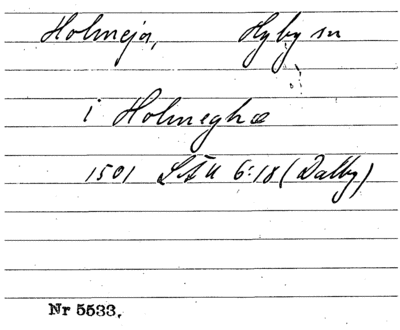 Holmeja, Hyby sn
i Holmeghæ
1501 LÄU 6:18 (Dalby)
Nr 5533.